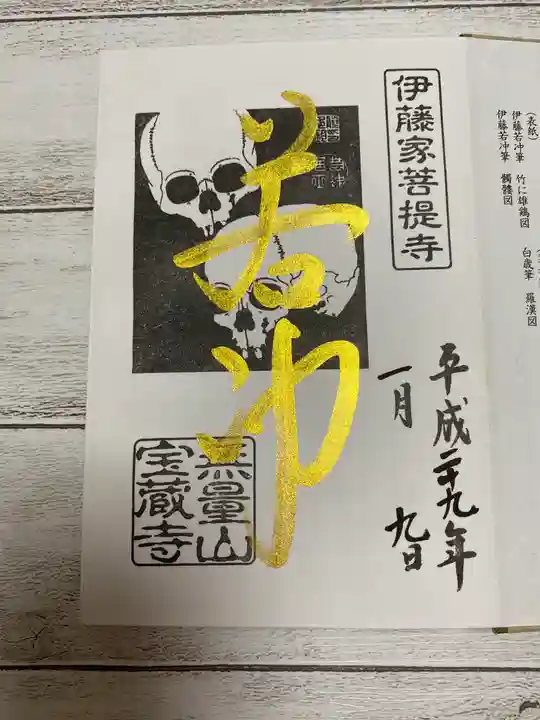 (表紙)
伊藤若冲筆 竹に雄鶏図
伊藤若冲筆 髑髏図
白歳筆 羅漢図
伊藤家菩提寺
平成二十九年
一月 九日
若冲
無量山
宝蔵寺